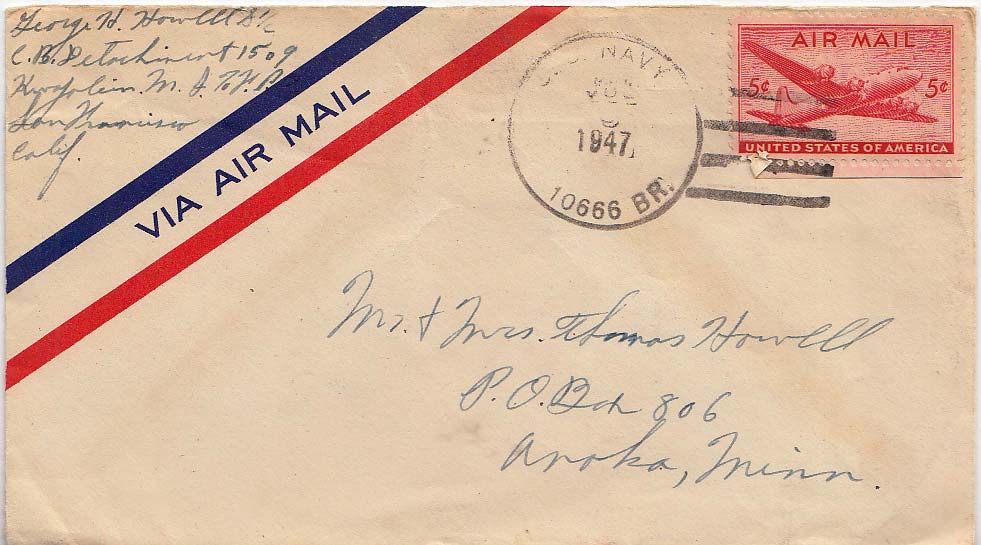 George H. Howell S 1/c
C.B. Detachment 1509
Kwajalein M. I. T.H.P.
San Francisco
Calif.
VIA AIR MAIL
U.S. NAVY
JUL
1947
10666 BR.
AIR MAIL
5¢ 5¢
UNITED STATES OF AMERICA
Mr. & Mrs. Thomas Howell
P.O. Box 806
Anoka, Minn.